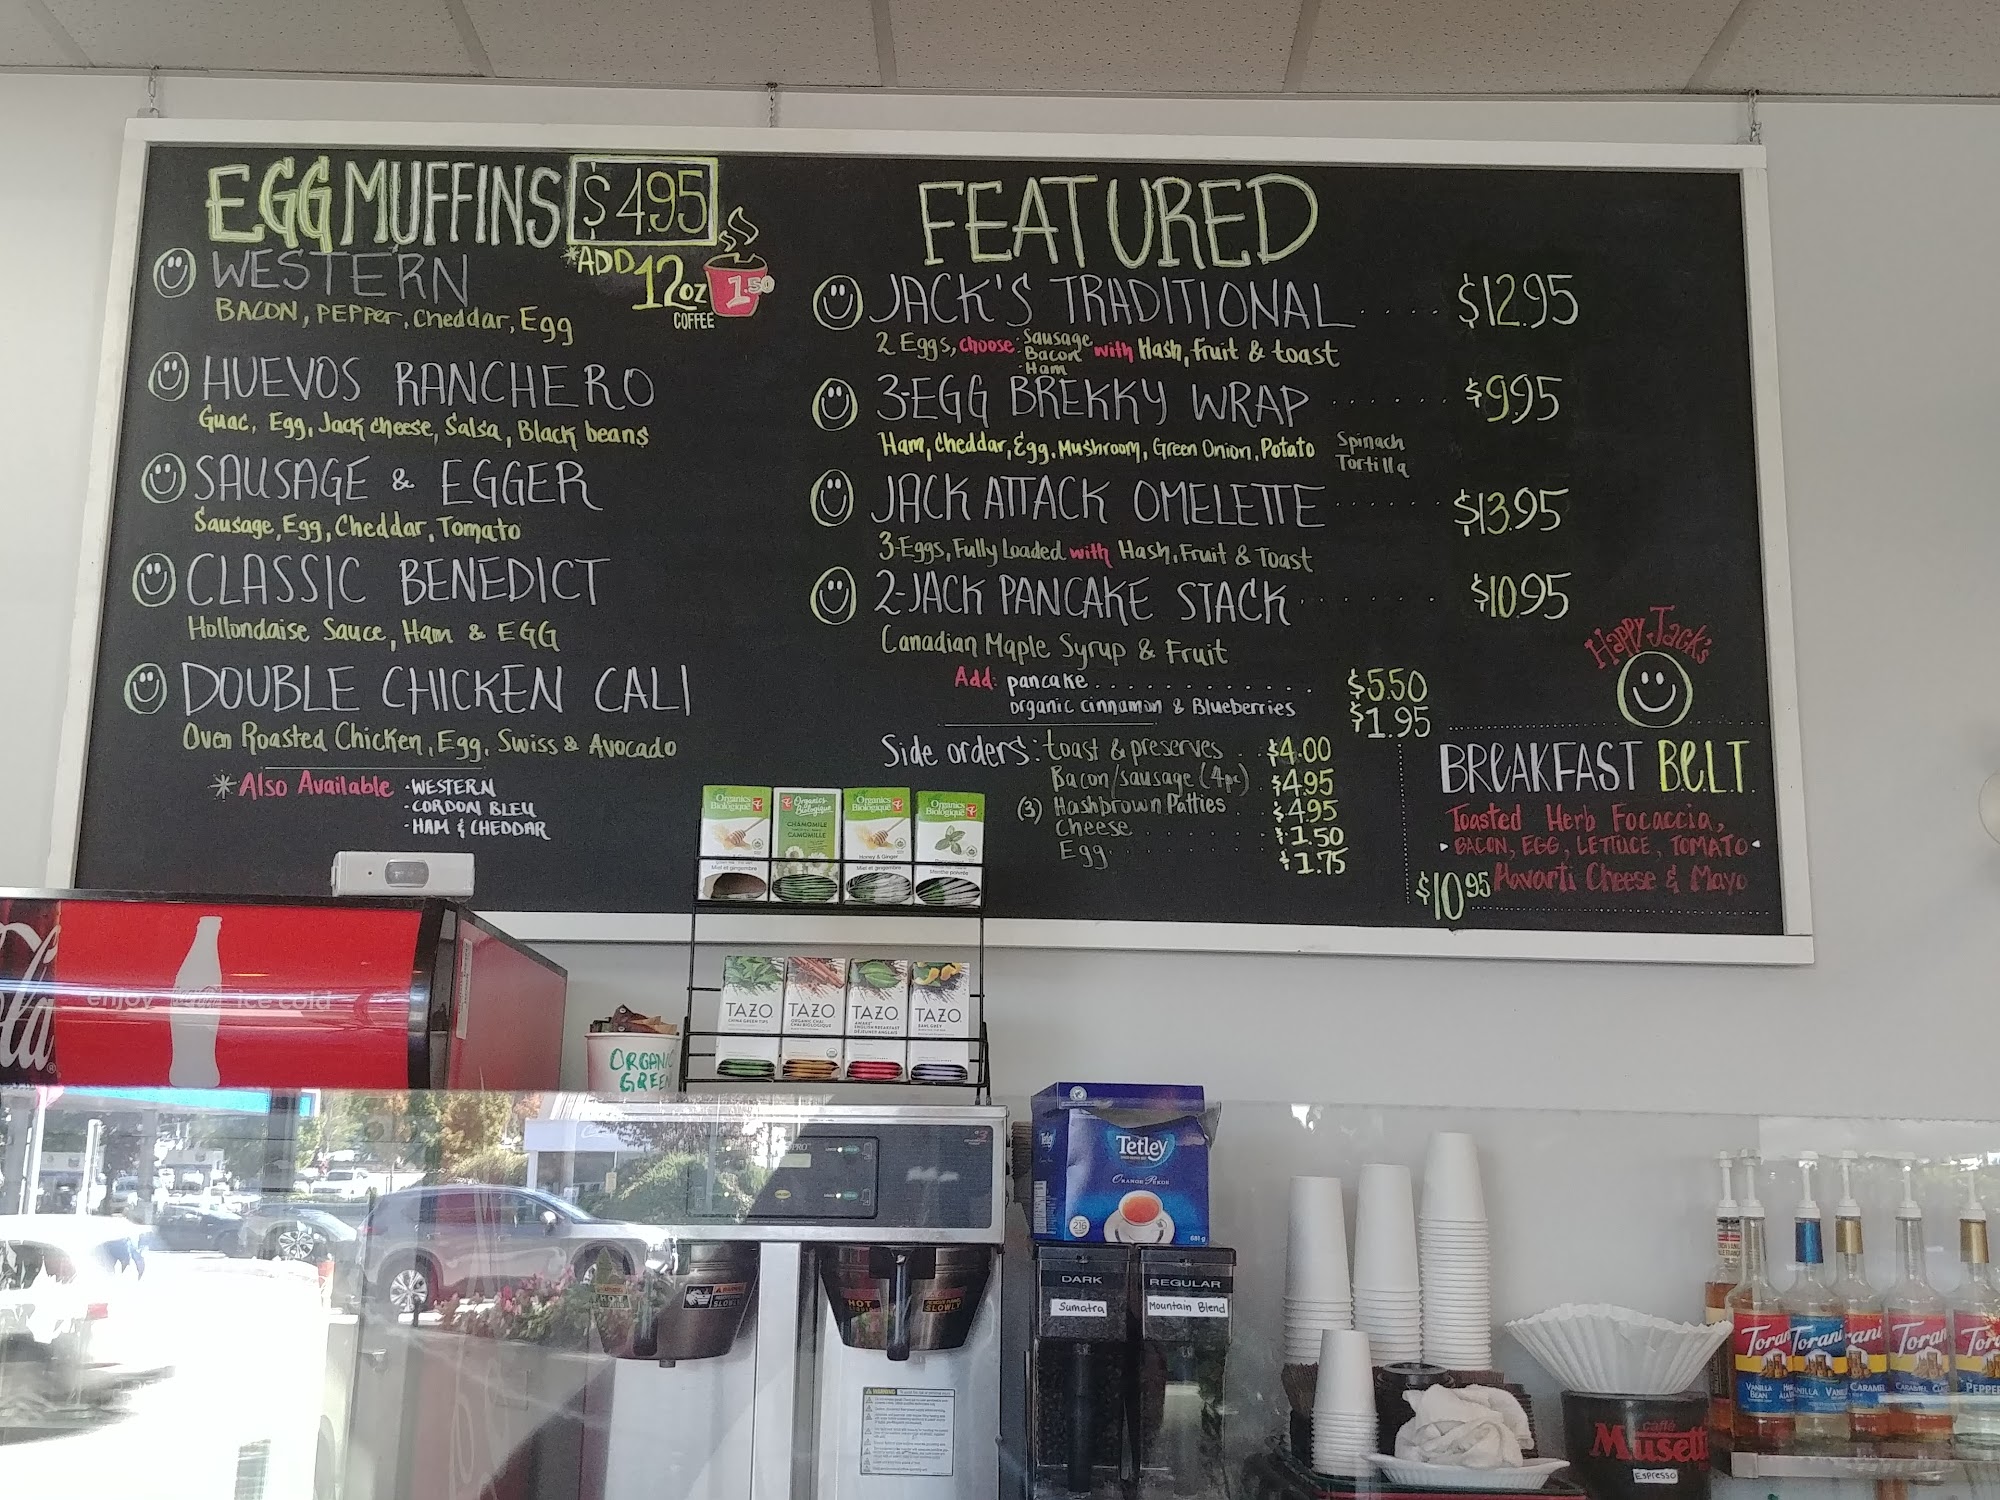 EGG MUFFINS $4.95
*ADD 12oz COFFEE 1.50
WESTERN
BACON, PEPPER, Cheddar, Egg
HUEVOS RANCHERO
Guac, Egg, Jack cheese, Salsa, Black beans
SAUSAGE & EGGER
Sausage, Egg, Cheddar, Tomato
CLASSIC BENEDICT
Hollondaise Sauce, Ham & EGG
DOUBLE CHICKEN CALI
Oven Roasted Chicken, Egg, Swiss & Avocado
*Also Available
-WESTERN
-CORDON BLEU
-HAM & CHEDDAR
FEATURED
JACK'S TRADITIONAL .... $12.95
2 Eggs, choose: Sausage Bacon Ham with Hash, fruit & toast
3-EGG BREKKY WRAP ...... $9.95
Ham, Cheddar, Egg, Mushroom, Green Onion, Potato Spinach Tortilla
JACK ATTACK OMELETTE ...... $13.95
3-Eggs, Fully Loaded with Hash, Fruit & Toast
2-JACK PANCAKE STACK ...... $10.95
Canadian Maple Syrup & Fruit
Add: pancake ............ $5.50
organic cinnamon & Blueberries $1.95
Side orders: toast & preserves .. $4.00
Bacon/sausage (4pc) $4.95
(3) Hashbrown Patties $4.95
Cheese ...... $1.50
Egg ....... $1.75
Happy Jack's
BREAKFAST B.E.L.T.
Toasted Herb Focaccia,
BACON, EGG, LETTUCE, TOMATO
Havarti Cheese & Mayo
$10.95
Organics Biologique
Organics Biologique
CHAMOMILE
CAMOMILLE
Organics Biologique
Honey & Ginger
Miel et gingembre
Organics Biologique
Menthe poivrée
Miel et gingembre
TAZO
CHINA GREEN TIPS
TAZO
ORGANIC CHAI
CHAI BIOLOGIQUE
TAZO
AWAKE
ENGLISH BREAKFAST
DÉJEUNER ANGLAIS
TAZO
EARL GREY
ORGANIC GREEN
enjoy Coca-Cola ice cold
Tetley
ORANGE PEKOE
216
681 g
DARK
Sumatra
REGULAR
Mountain Blend
HOT
SLOWLY
SLOWLY
WARNING
caffè
Musetti
Espresso
Torani
VANILLA BEAN
Torani
VANILLA
Torani
CARAMEL
Torani
CARAMEL
Torani
PEPPER